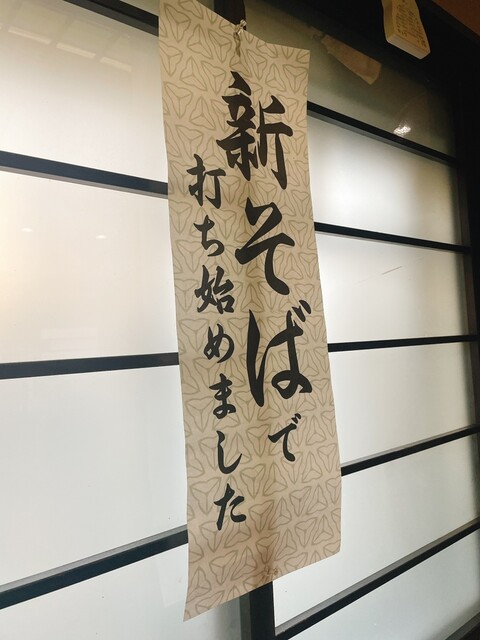 新そばで
打ち始めました